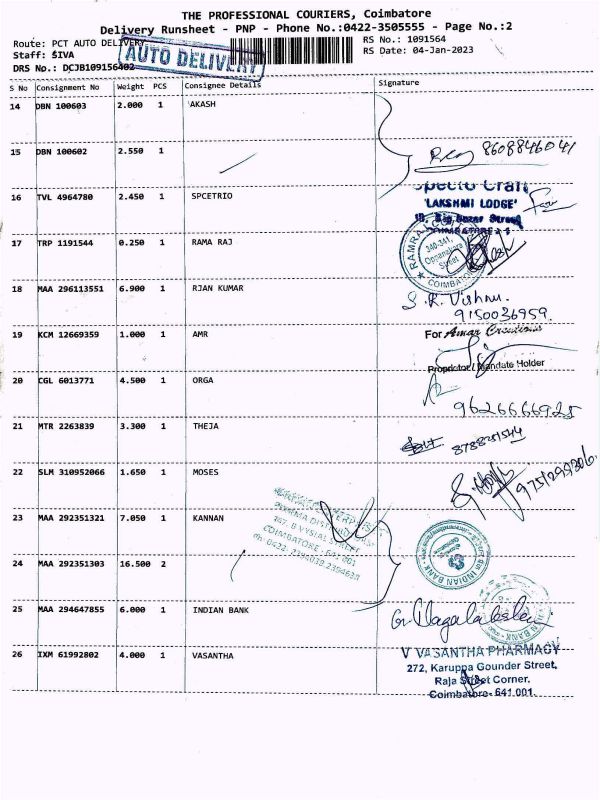 THE PROFESSIONAL COURIERS, Coimbatore
Delivery Runsheet - PNP - Phone No.:0422-3505555 - Page No.:2
Route: PCT AUTO DELIVERY
RS No.: 1091564
Staff: SIVA
RS Date: 04-Jan-2023
DRS No.: DCJB109156402
AUTO DELIVERY
S No Consignment No Weight PCS Consignee Details Signature
14 DBN 100603 2.000 1 AKASH
15 DBN 100602 2.550 1
8608846041
16 TVL 4964780 2.450 1 SPCETRIO
'LAKSHMI LODGE'
17 TRP 1191544 0.250 1 RAMA RAJ
340-341,
Oppanakara
Street
COIMBATORE
18 MAA 296113551 6.900 1 RJAN KUMAR
S. R. Vishnu.
9150036959.
19 KCM 12669359 1.000 1 AMR
For Amar Creations
Proprietor / Mandate Holder
20 CGL 6013771 4.500 1 ORGA
9626666925
21 MTR 2263839 3.300 1 THEJA
22 SLM 310952066 1.650 1 MOSES
23 MAA 292351321 7.050 1 KANNAN
PHARMA DISTRIBUTORS
COIMBATORE - 641 001
24 MAA 292351303 16.500 2
INDIAN BANK
25 MAA 294647855 6.000 1 INDIAN BANK
26 IXM 61992802 4.000 1 VASANTHA
V VASANTHA PHARMACY
272, Karuppa Gounder Street,
Raja Street Corner,
Coimbatore- 641 001.